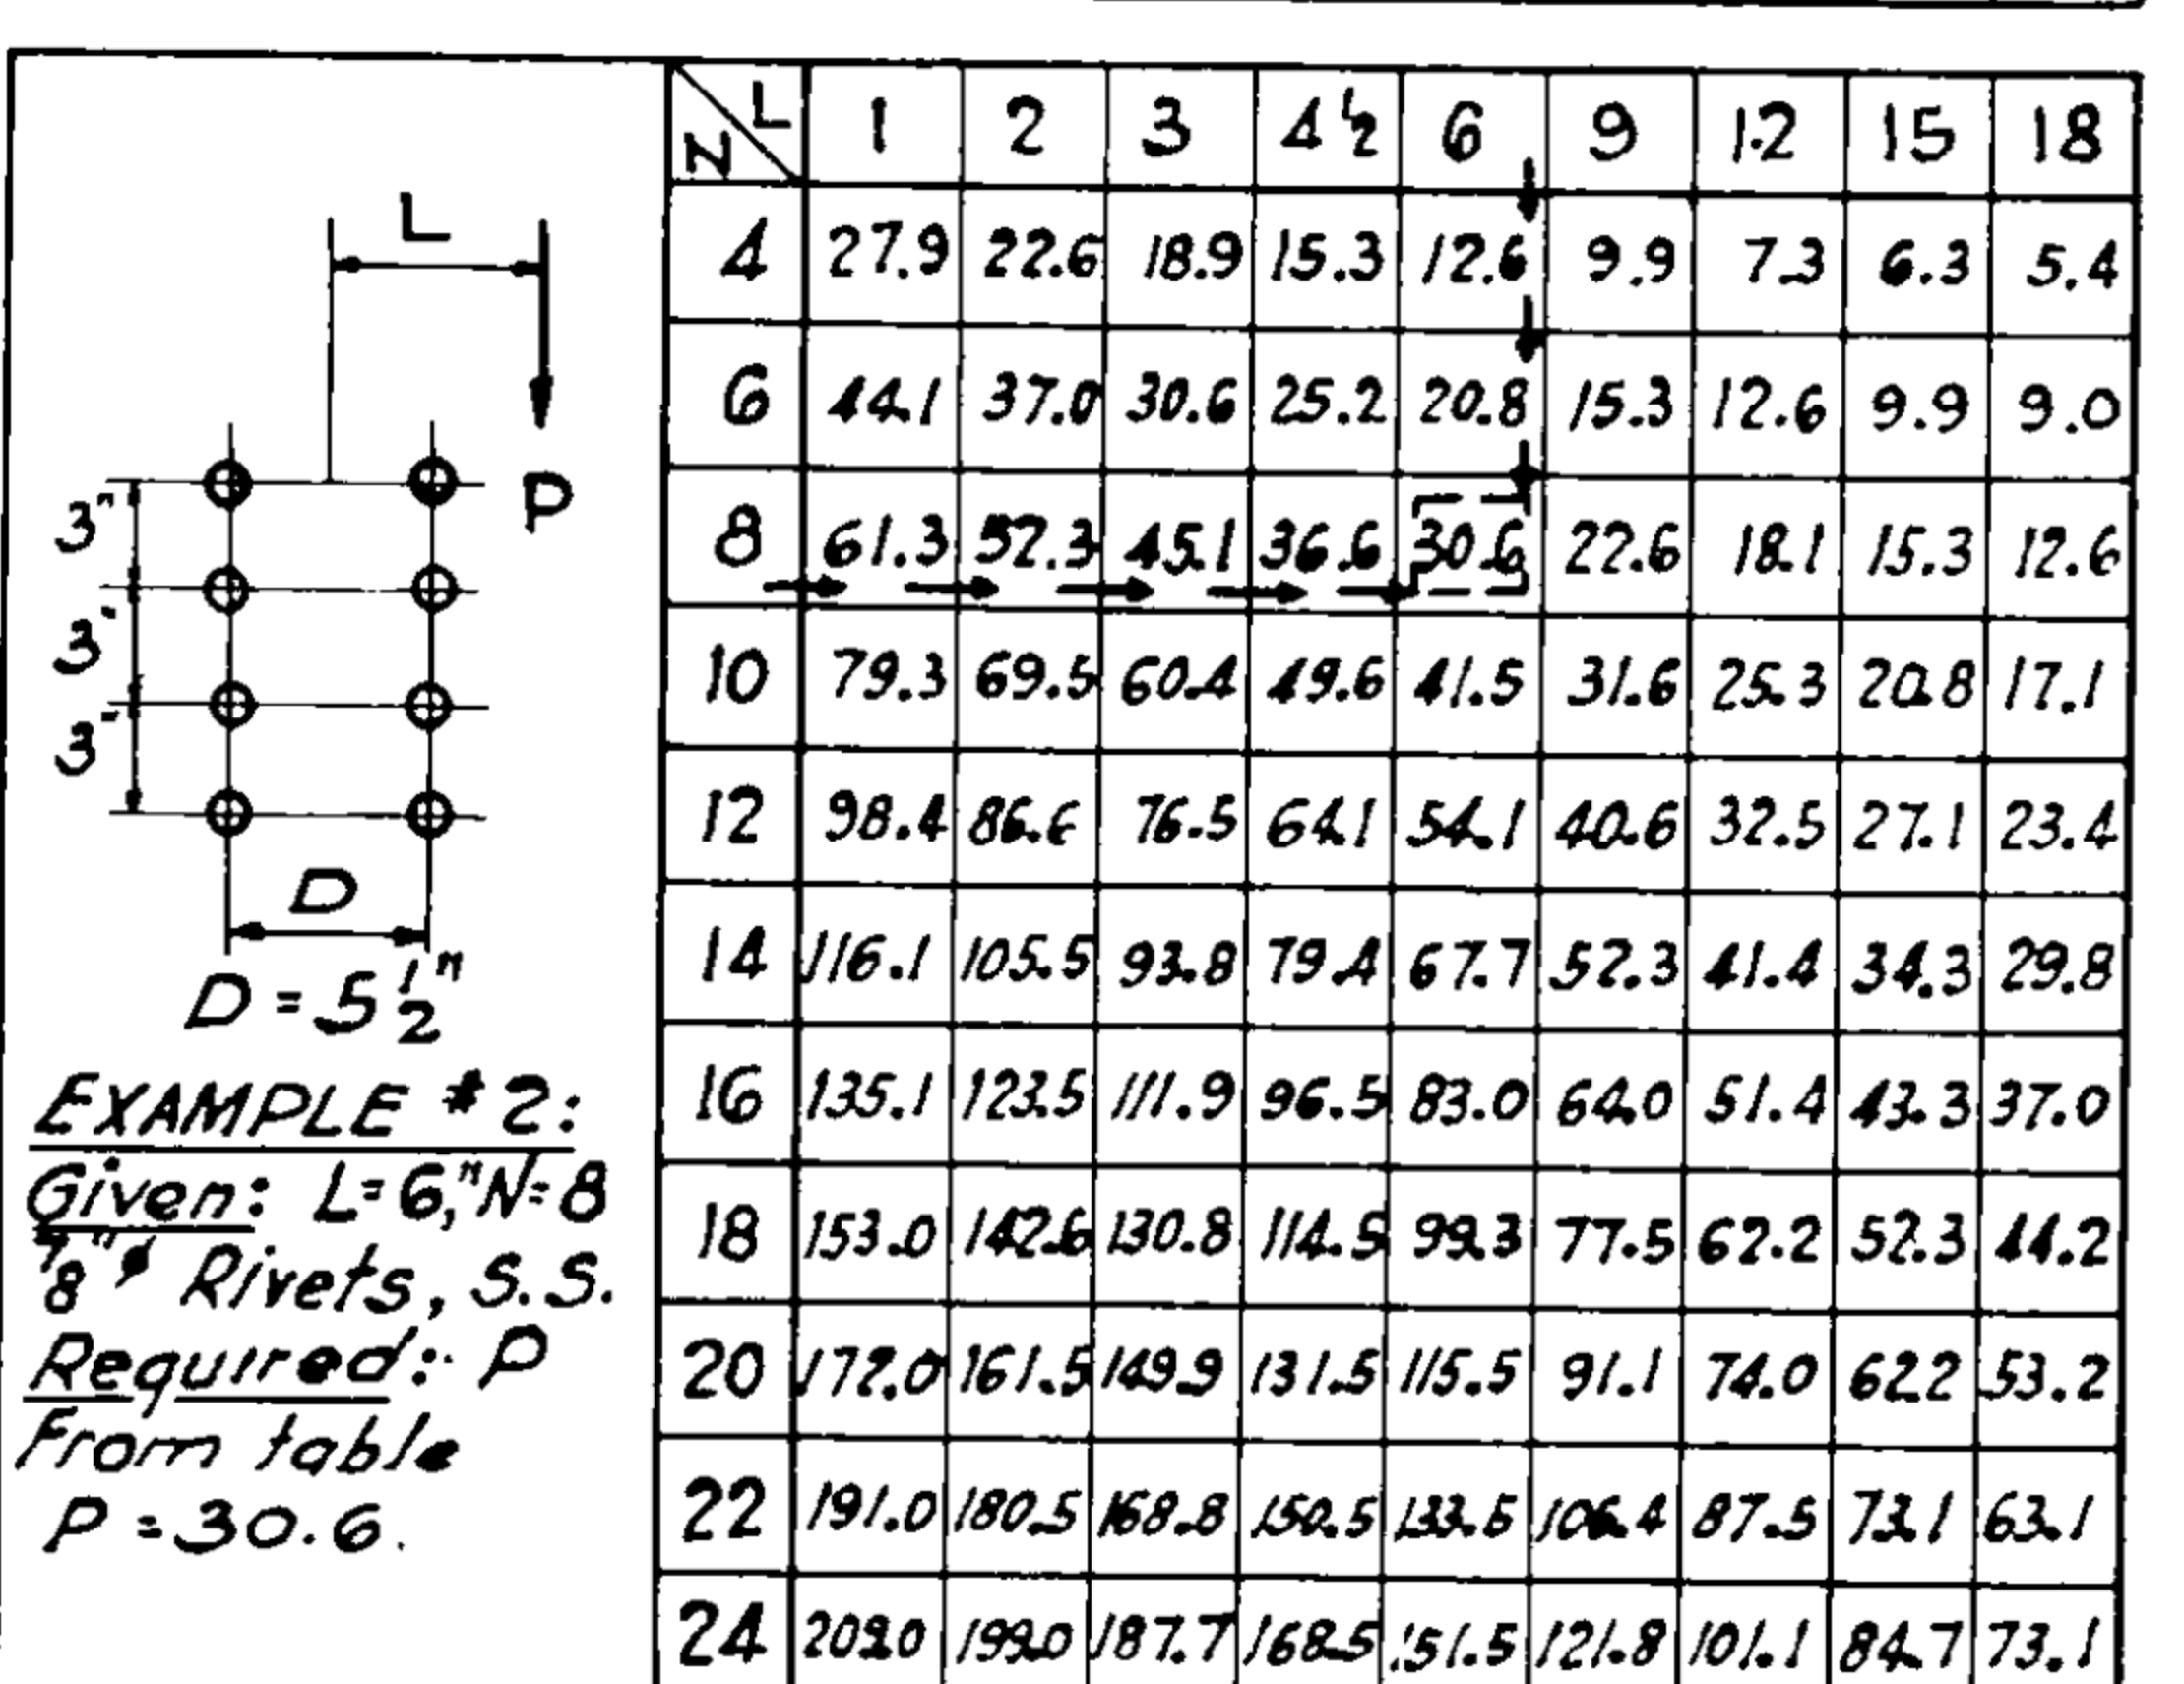 L
P
3"
3"
3"
D
D = 5 1/2"
EXAMPLE #2:
Given: L=6," N=8
7/8"ø Rivets, S.S.
Required: P
From table
P = 30.6.
N L 1 2 3 4 1/2 6 9 12 15 18
4 27.9 22.6 18.9 15.3 12.6 9.9 7.3 6.3 5.4
6 44.1 37.0 30.6 25.2 20.8 15.3 12.6 9.9 9.0
8 61.3 52.3 45.1 36.6 30.6 22.6 18.1 15.3 12.6
10 79.3 69.5 60.4 49.6 41.5 31.6 25.3 20.8 17.1
12 98.4 86.6 76.5 64.1 54.1 40.6 32.5 27.1 23.4
14 116.1 105.5 93.8 79.4 67.7 52.3 41.4 34.3 29.8
16 135.1 123.5 111.9 96.5 83.0 64.0 51.4 43.3 37.0
18 153.0 142.6 130.8 114.5 99.3 77.5 62.2 52.3 44.2
20 172.0 161.5 149.9 131.5 115.5 91.1 74.0 62.2 53.2
22 191.0 180.5 168.8 150.5 133.5 106.4 87.5 73.1 63.1
24 199.0 187.7 168.5 151.5 121.8 101.1 84.7 73.1